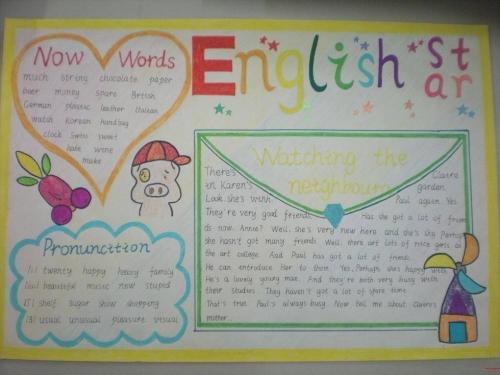 English Star
Now Words
much string chocolate paper
beer money spare British
German plastic leather Italian
watch Korean handbag
clock Swiss sweet
hate wine
make
Pronuncition
/i/ twenty happy heavy family
/u:/ beautiful music new stupid
/ʃ/ shelf sugar show shopping
/ʒ/ usual unusual pleasure visual
Watching the
neighbours
There's Claire
in Karen's garden.
Look. she's with Paul again. Yes.
They're very good friends. Has she got a lot of frien
ds now. Annie? Well, she's very new here and she's shy. Perhaps
she hasn't got many friends. Well, there are lots of nice girls at
the art college. And Paul has got a lot of friends.
He can introduce her to them. Yes, Perhaps she's happy with
He's a lovely young man. And they're both very busy with
their studies. They haven't got a lot of spare time.
That's true. Paul's always busy. Now tell me about Claire's
mother.